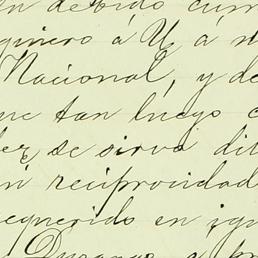 n debido cum
quiero á U. á n
Nacional, y de
ue tan luego c
ber, se sirva dil
n reciprocidad
requerido en igu
Durango, a pr